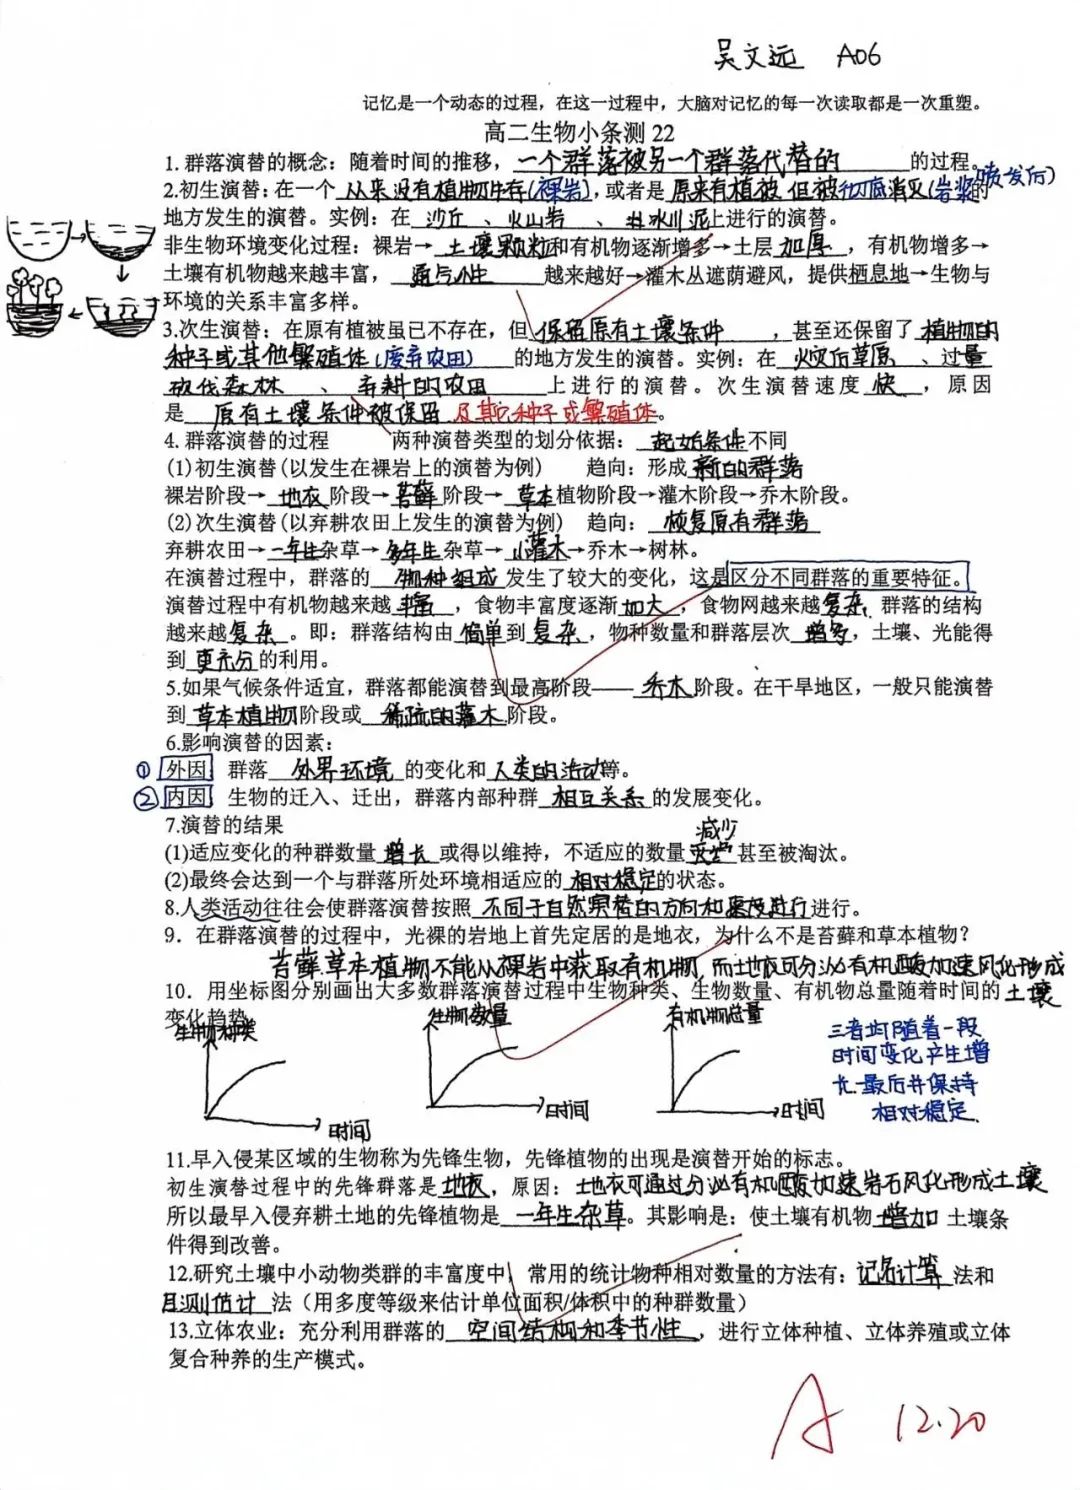 吴文远 A06
记忆是一个动态的过程，在这一过程中，大脑对记忆的每一次读取都是一次重塑。
高二生物小条测 22
1. 群落演替的概念：随着时间的推移，一个群落被另一个群落代替的的过程。
2.初生演替：在一个 从来没有植物生存(裸岩)，或者是 原来有植被 但被彻底消灭(岩浆喷发后)的
地方发生的演替。实例：在 沙丘 、火山岩 、冰川泥上进行的演替。
非生物环境变化过程：裸岩→ 土壤颗粒和有机物逐渐增多→土层 加厚 ，有机物增多→
土壤有机物越来越丰富， 通气性 越来越好→灌木丛遮荫避风，提供栖息地→生物与
环境的关系丰富多样。
3.次生演替：在原有植被虽已不存在，但 保留原有土壤条件 ，甚至还保留了 植物的
种子或其他繁殖体(废弃农田) 的地方发生的演替。实例：在 火灾后草原 、过量
砍伐森林 、 弃耕的农田 上进行的演替。次生演替速度 快 ，原因
是 原有土壤条件被保留 及其它种子或繁殖体。
4. 群落演替的过程 两种演替类型的划分依据： 起始条件不同
(1)初生演替(以发生在裸岩上的演替为例) 趋向：形成 新的群落
裸岩阶段→ 地衣 阶段→ 苔藓 阶段→ 草本植物阶段→灌木阶段→乔木阶段。
(2)次生演替(以弃耕农田上发生的演替为例) 趋向： 恢复原有群落
弃耕农田→一年生杂草→多年生杂草→ 小灌木→乔木→树林。
在演替过程中，群落的 物种组成 发生了较大的变化，这是区分不同群落的重要特征。
演替过程中有机物越来越 丰富 ，食物丰富度逐渐 加大 ，食物网越来越复杂. 群落的结构
越来越复杂 。即：群落结构由 简单到 复杂 ，物种数量和群落层次 增多，土壤、光能得
到 更充分的利用。
5.如果气候条件适宜，群落都能演替到最高阶段—— 乔木 阶段。在干旱地区，一般只能演替
到 草本植物阶段或 稀疏的灌木 阶段。
6.影响演替的因素：
① 外因 群落 外界环境 的变化和 人类的活动等。
② 内因 生物的迁入、迁出，群落内部种群 相互关系 的发展变化。
7.演替的结果
减少
(1)适应变化的种群数量 增长 或得以维持，不适应的数量 甚至被淘汰。
(2)最终会达到一个与群落所处环境相适应的 相对稳定的状态。
8.人类活动往往会使群落演替按照 不同于自然演替的方向和速度进行进行。
9．在群落演替的过程中，光裸的岩地上首先定居的是地衣，为什么不是苔藓和草本植物？
苔藓草本植物不能从裸岩中获取有机物，而地衣可分泌有机酸加速风化形成
土壤
10．用坐标图分别画出大多数群落演替过程中生物种类、生物数量、有机物总量随着时间的
变化趋势
生物种类 生物数量 有机物总量
时间 时间 时间
三者均随着一段
时间变化产生增
长.最后并保持
相对稳定.
11.早入侵某区域的生物称为先锋生物，先锋植物的出现是演替开始的标志。
初生演替过程中的先锋群落是地衣，原因：地衣可通过分泌有机酸加速岩石风化形成土壤
所以最早入侵弃耕土地的先锋植物是 一年生杂草。其影响是：使土壤有机物 增加 土壤条
件得到改善。
12.研究土壤中小动物类群的丰富度中，常用的统计物种相对数量的方法有：记名计算 法和
目测估计 法（用多度等级来估计单位面积/体积中的种群数量）
13.立体农业：充分利用群落的 空间结构和季节性 ，进行立体种植、立体养殖或立体
复合种养的生产模式。
A 12.20